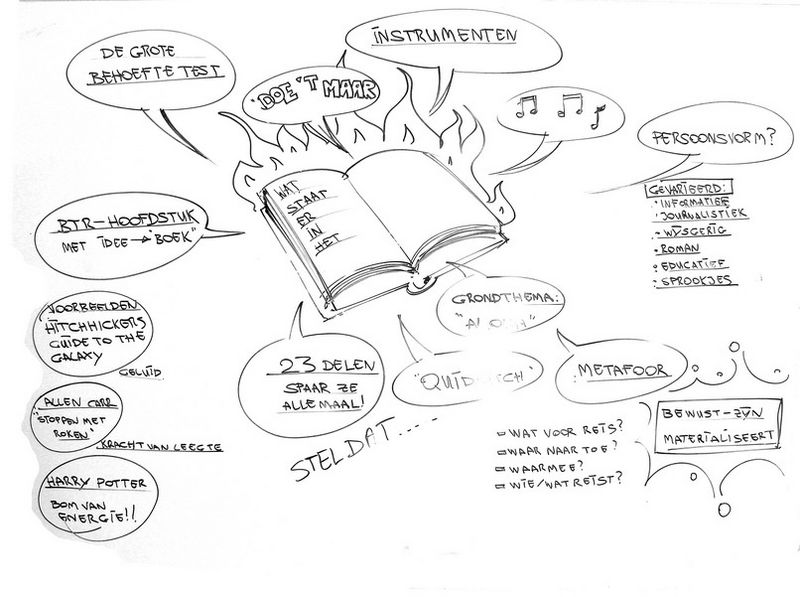 DE GROTE
BEHOEFTE TEST
INSTRUMENTEN
'DOE 'T MAAR
PERSOONSVORM?
GEVARIEERD:
• INFORMATIEF
• JOURNALISTIEK
• WIJSGERIG
• ROMAN
• EDUCATIEF
• SPROOKJES
WAT
STAAT
ER
IN
HET
BTR-HOOFDSTUK
MET IDEE → "BOEK"
VOORBEELDEN
HITCHHICKERS
GUIDE TO THE
GALAXY
GELUID
ALLEN CARR
"STOPPEN MET
ROKEN"
KRACHT VAN LEEGTE
HARRY POTTER
BOM VAN
ENERGIE!!
23 DELEN
SPAAR ZE
ALLEMAAL!
GRONDTHEMA:
METAFOOR
STEL DAT.....
- WAT VOOR REIS?
- WAAR NAAR TOE?
- WAARMEE?
- WIE/WAT REIST?
BEWUST-ZIJN
MATERIALISEERT